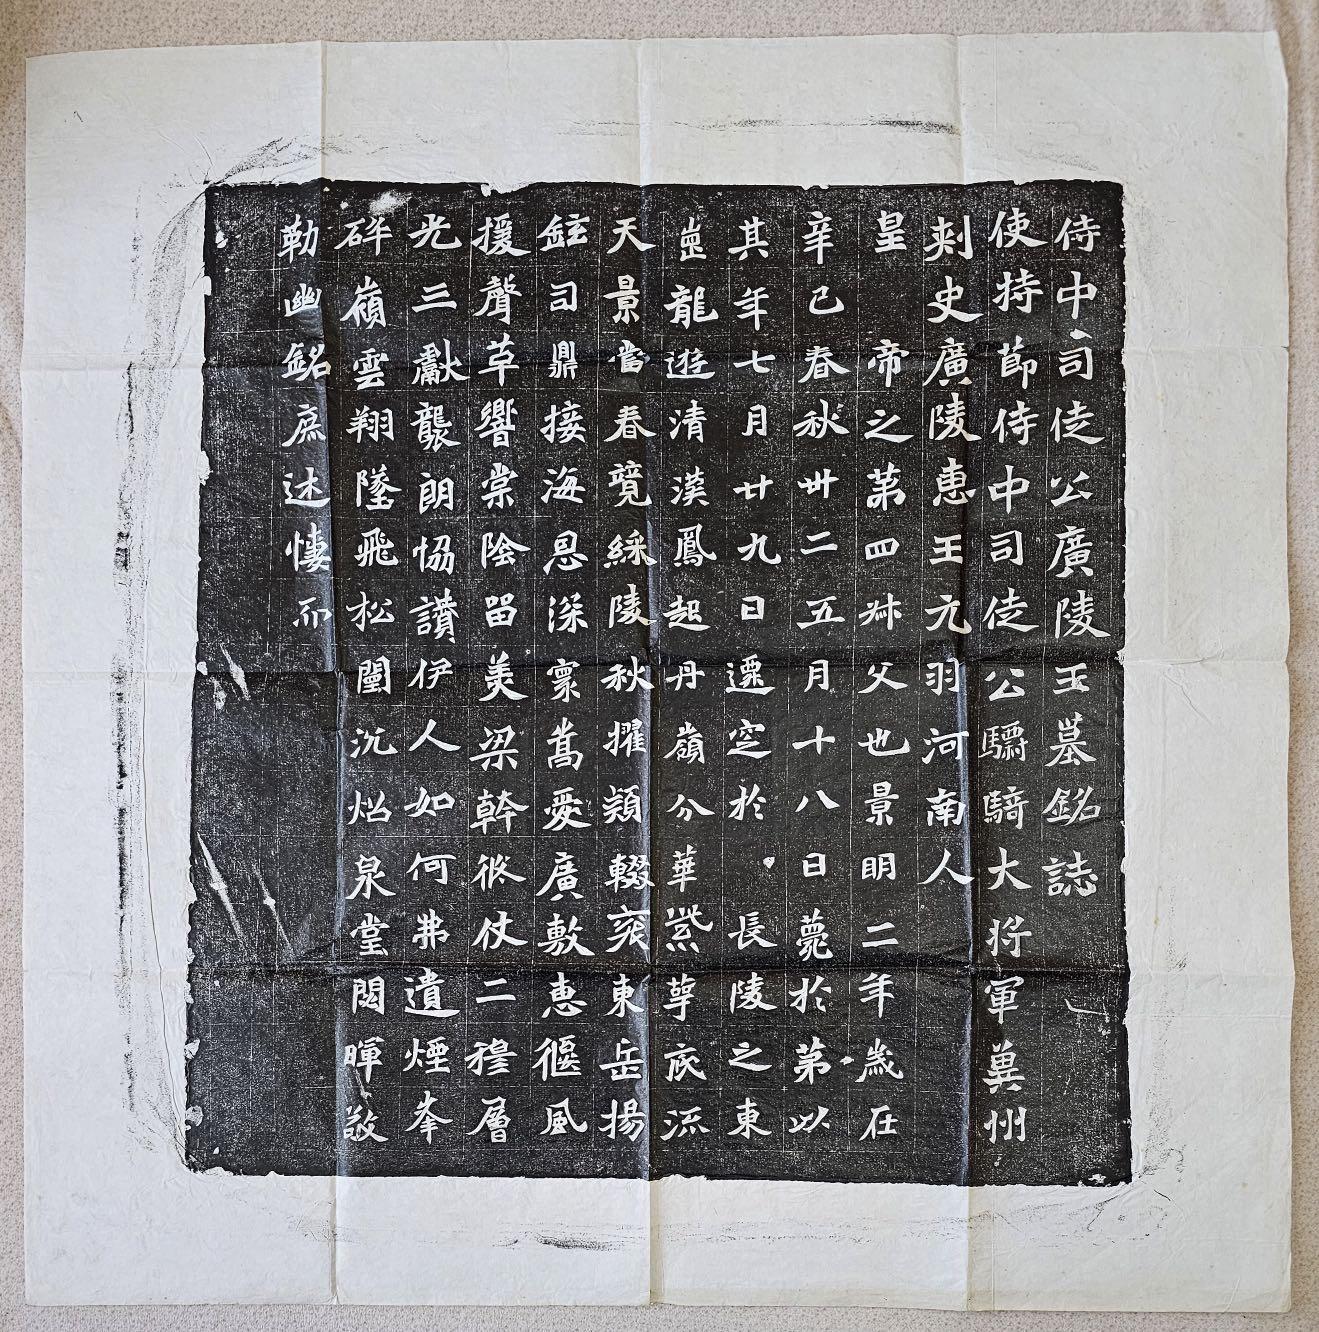 侍中司徒公廣陵王墓銘誌
使持節侍中司徒公驃騎大将軍冀州
刾史廣陵惠王元羽河南人
皇帝之第四叔父也景明二年歳在
辛巳春秋卅二五月十八日薨於第以
其年七月廿九日遷窆於長陵之東
崗龍遊清漢鳳起丹嶺分華紫萼底流
天景當春競綵陵秋擢穎輟兖東岳揚
鉉司鼎接海恩深寰嵩愛廣敷惠偃風
援聲草響棠陰留美梁幹俻仗二穆層
光三獻襲朗恊讃伊人如何弗遺煙峯
碎嶺雲翔墜飛松闥沉炤泉堂閟暉敬
勒幽銘庶述悽而